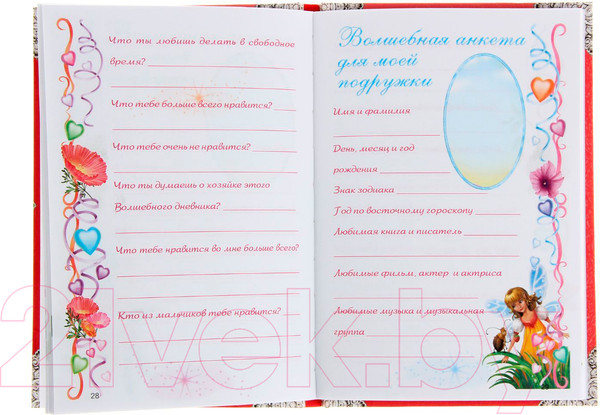 Что ты любишь делать в свободное
время?
Что тебе больше всего нравится?
Что тебе очень не нравится?
Что ты думаешь о хозяйке этого
Волшебного дневника?
Что тебе нравится во мне больше всего?
Кто из мальчиков тебе нравится?
28
Волшебная анкета
для моей
подружки
Имя и фамилия
День, месяц и год
рождения
Знак зодиака
Год по восточному гороскопу
Любимая книга и писатель
Любимые фильм, актер и актриса
Любимые музыка и музыкальная
группа
21vek.by